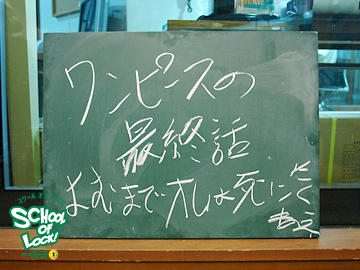 ワンピースの
最終話
よむまでオレは死にて
スクール オブ
SCHOOL
OF
LOCK!